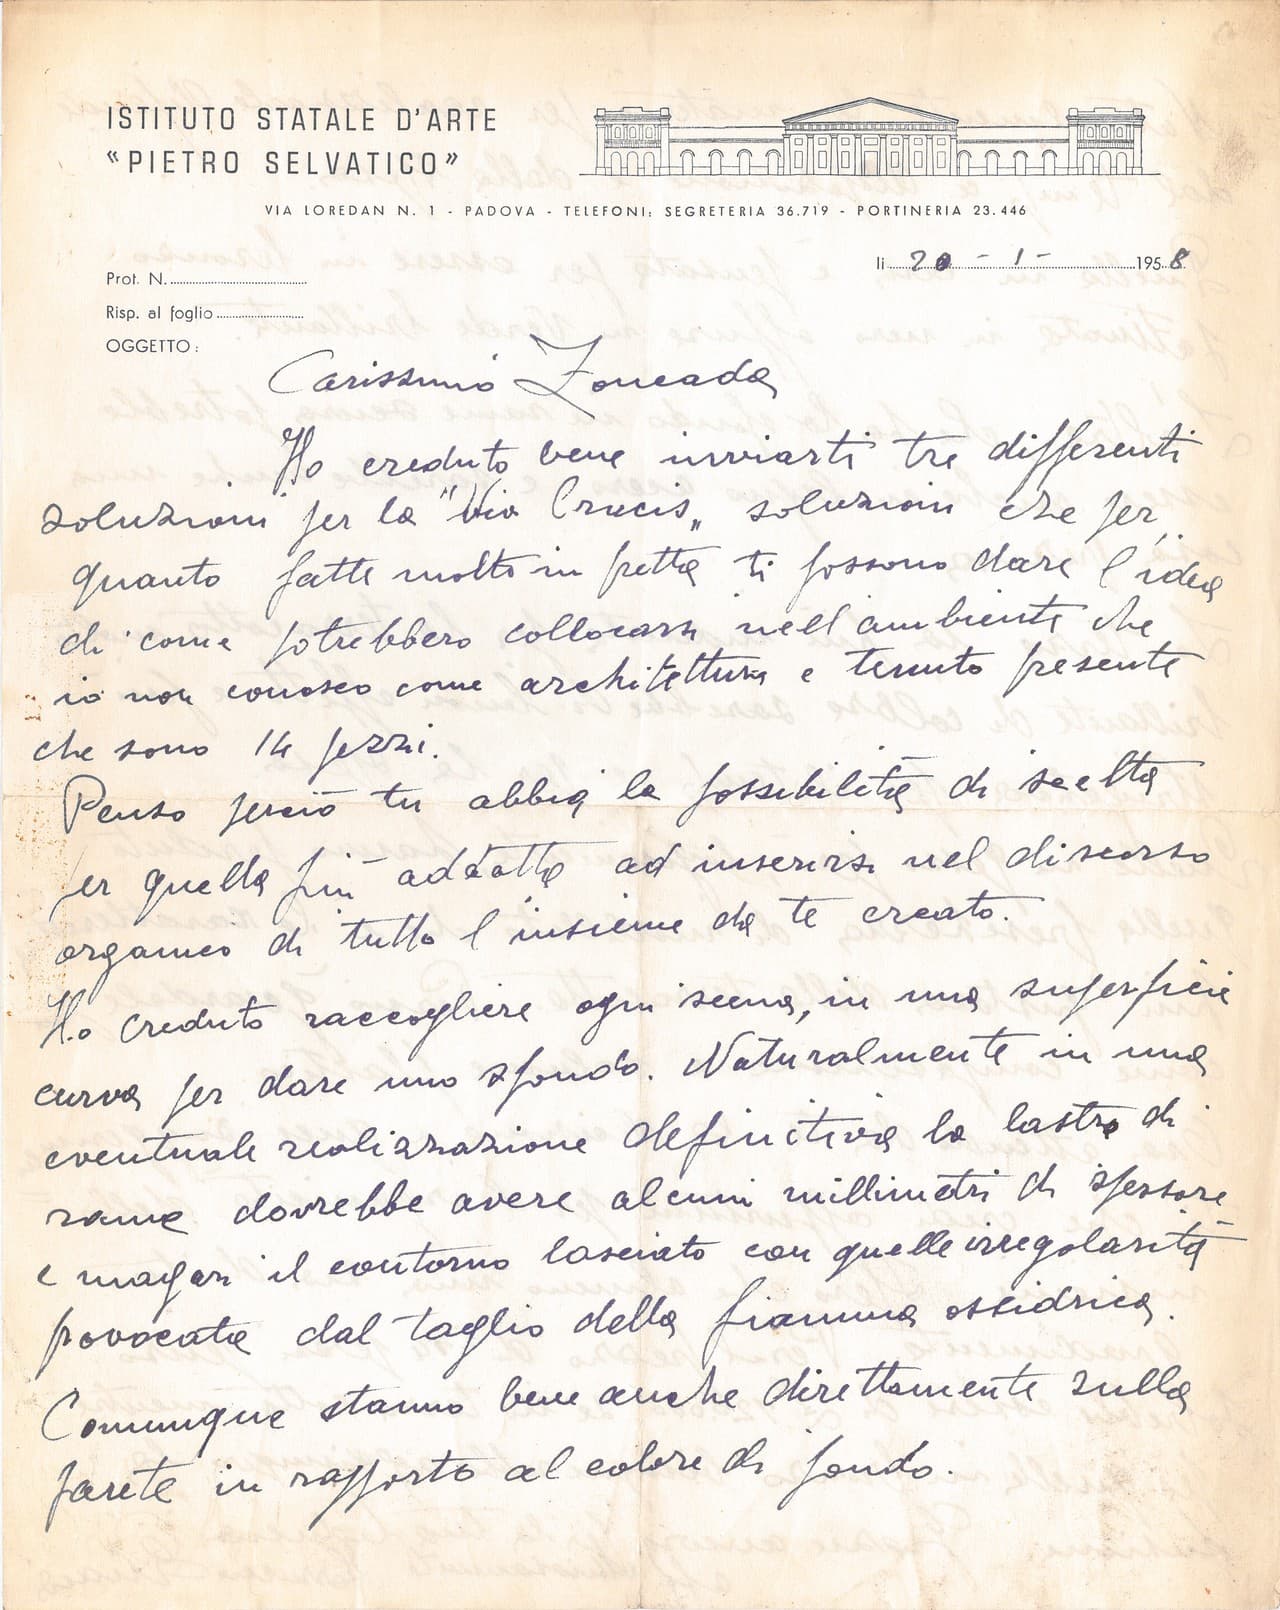 ISTITUTO STATALE D'ARTE
“PIETRO SELVATICO”
VIA LOREDAN N. 1 - PADOVA - TELEFONI: SEGRETERIA 36.719 - PORTINERIA 23.446
li 20 - 1 - 1958
Prot. N.
Risp. al foglio
OGGETTO:
Carissimo Zoncada
Ho creduto bene inviarti tre differenti
soluzioni per la "Via Crucis„ soluzioni che per
quanto fatte molto in fretta ti possono dare l'idea
di come potrebbero collocarsi nell'ambiente che
io non conosco come architettura e tenuto presente
che sono 14 pezzi.
Penso perciò tu abbia la possibilità di scelta
per quella più addatta ad inserirsi nel discorso
organico di tutto l'insieme da te creato.
Ho creduto raccogliere ogni scena, in una superficie
curva per dare uno sfondo. Naturalmente in una
eventuale realizzazione definitiva la lastra di
rame dovrebbe avere alcuni millimetri di spessore
e magari il contorno lasciato con quelle irregolarità
provocate dal taglio della fiamma ossidrica.
Comunque stanno bene anche direttamente sulla
parete in rapporto al colore di fondo.